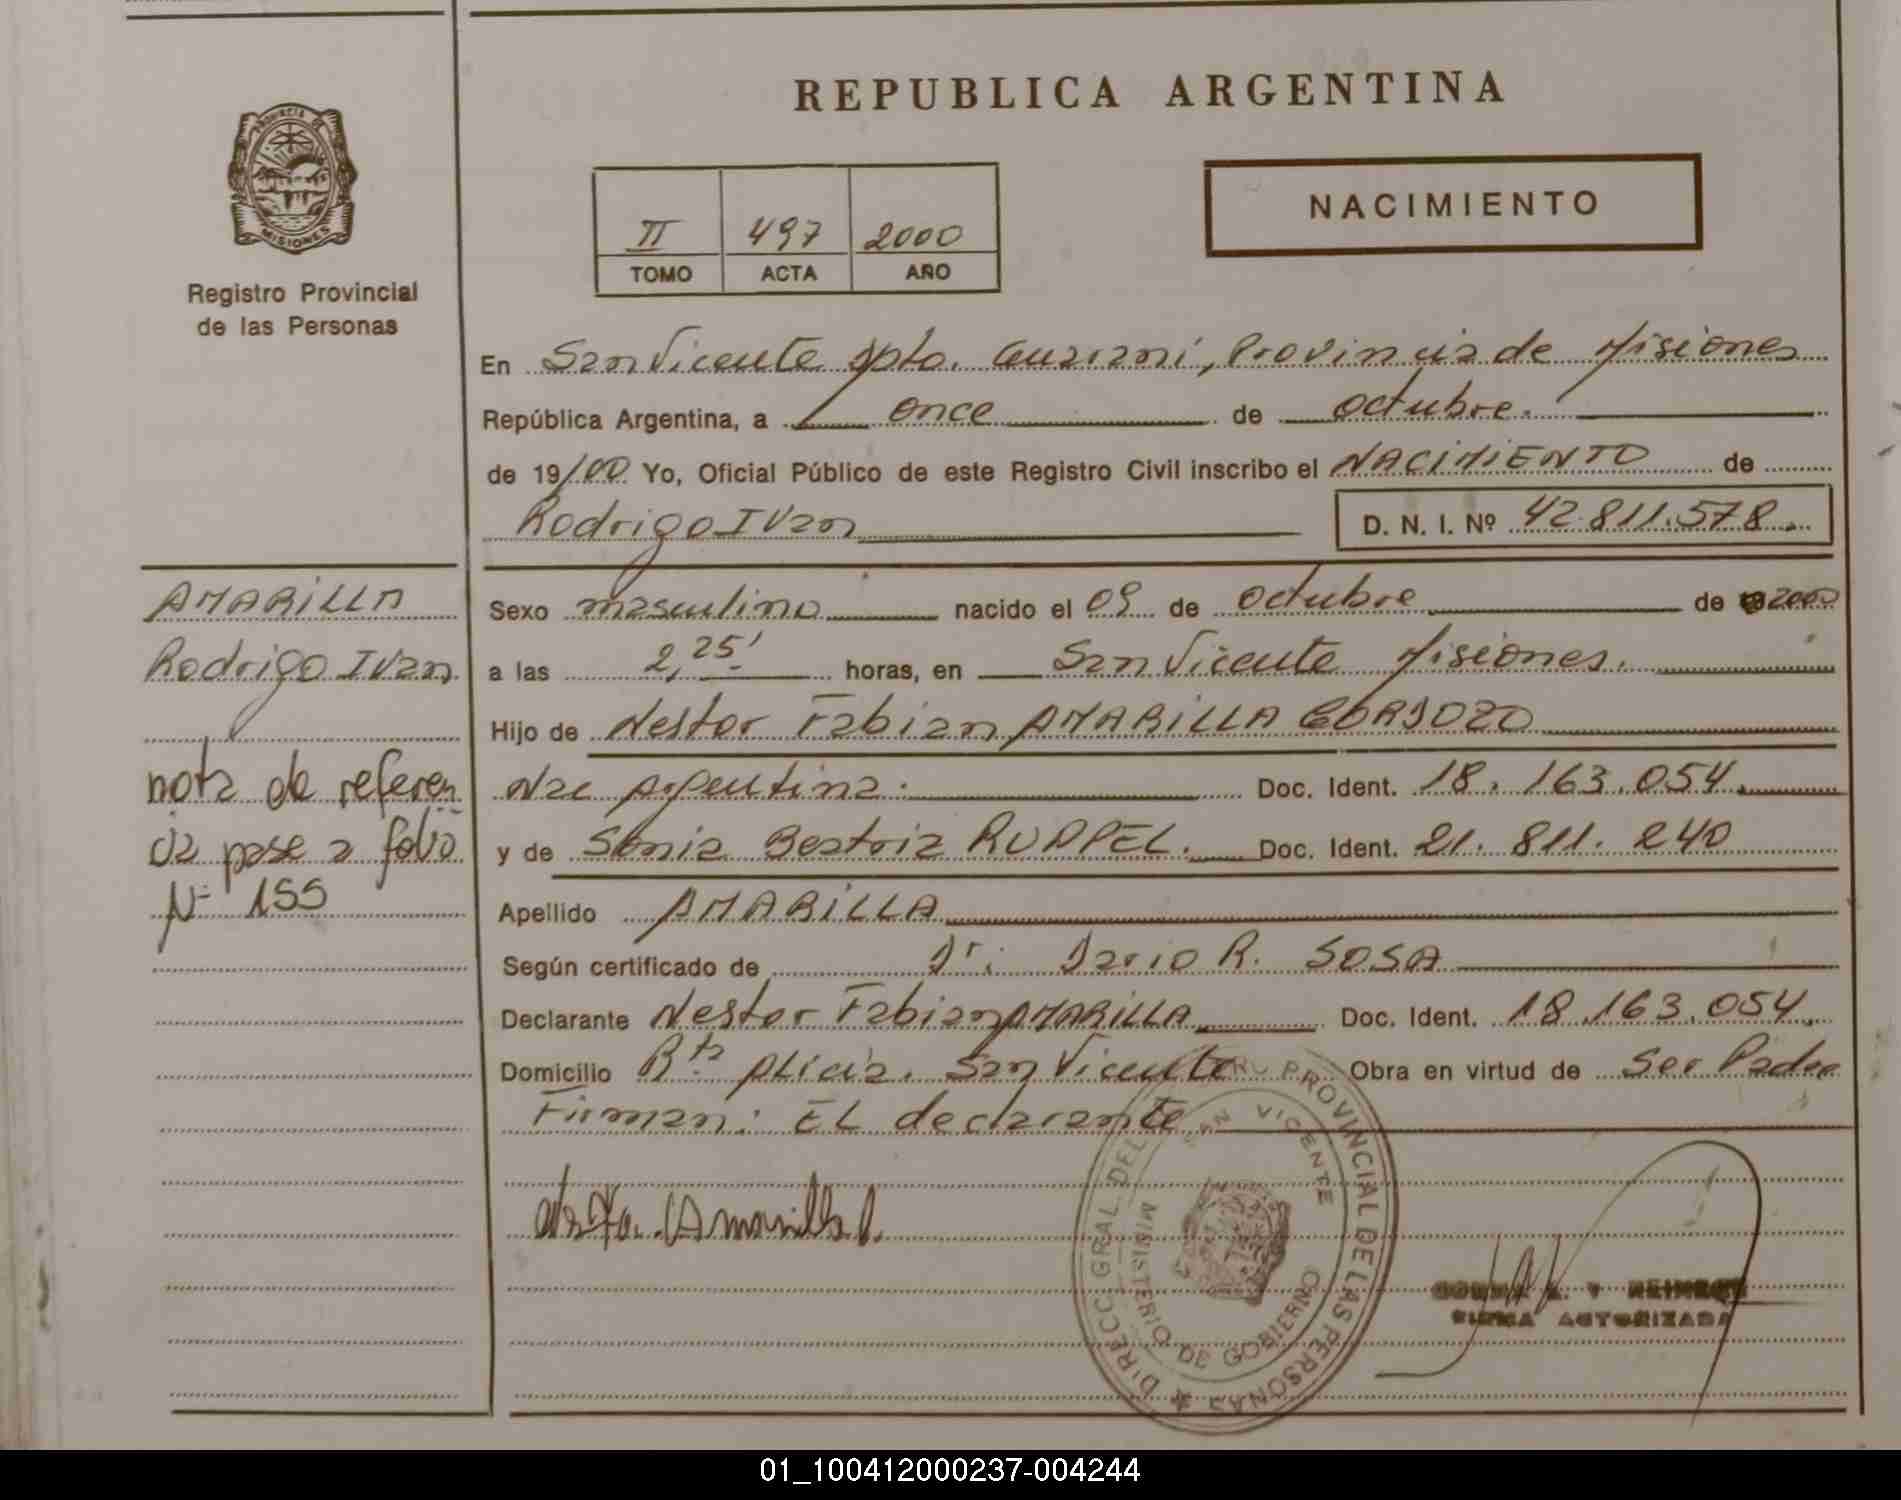 REPUBLICA ARGENTINA
PROVINCIA DE
MISIONES
Registro Provincial
de las Personas
II 497 2000
TOMO ACTA AÑO
NACIMIENTO
En San Vicente Dpto. Guarani, Provincia de Misiones
República Argentina, a once de octubre.
de 19/00 Yo, Oficial Público de este Registro Civil inscribo el NACIMIENTO de
Rodrigo Ivan
D. N. I. Nº 42.811.578.
AMARILLA
Rodrigo Ivan
nota de referen
cia pase a folio
Nº 155
Sexo masculino nacido el 09 de octubre de 2000
a las 2,25' horas, en San Vicente Misiones.
Hijo de Nestor Fabian AMARILLA CORDOZO
Nac Argentina. Doc. Ident. 18.163.054.
y de Sonia Beatriz Doc. Ident. 21.811.240
Apellido AMARILLA
Según certificado de Dr: Dario R. SOSA
Declarante Nestor Fabian AMARILLA Doc. Ident. 18.163.054.
Domicilio Bº Alicia. San Vicente Obra en virtud de Ser Padre
Firman: EL declarante
DIRECC. GRAL. DEL PROVINCIAL DE LAS PERSONAS
SAN VICENTE
MINISTERIO DE GOBIERNO
Amarilla
FIRMA AUTORIZADA
01_100412000237-004244